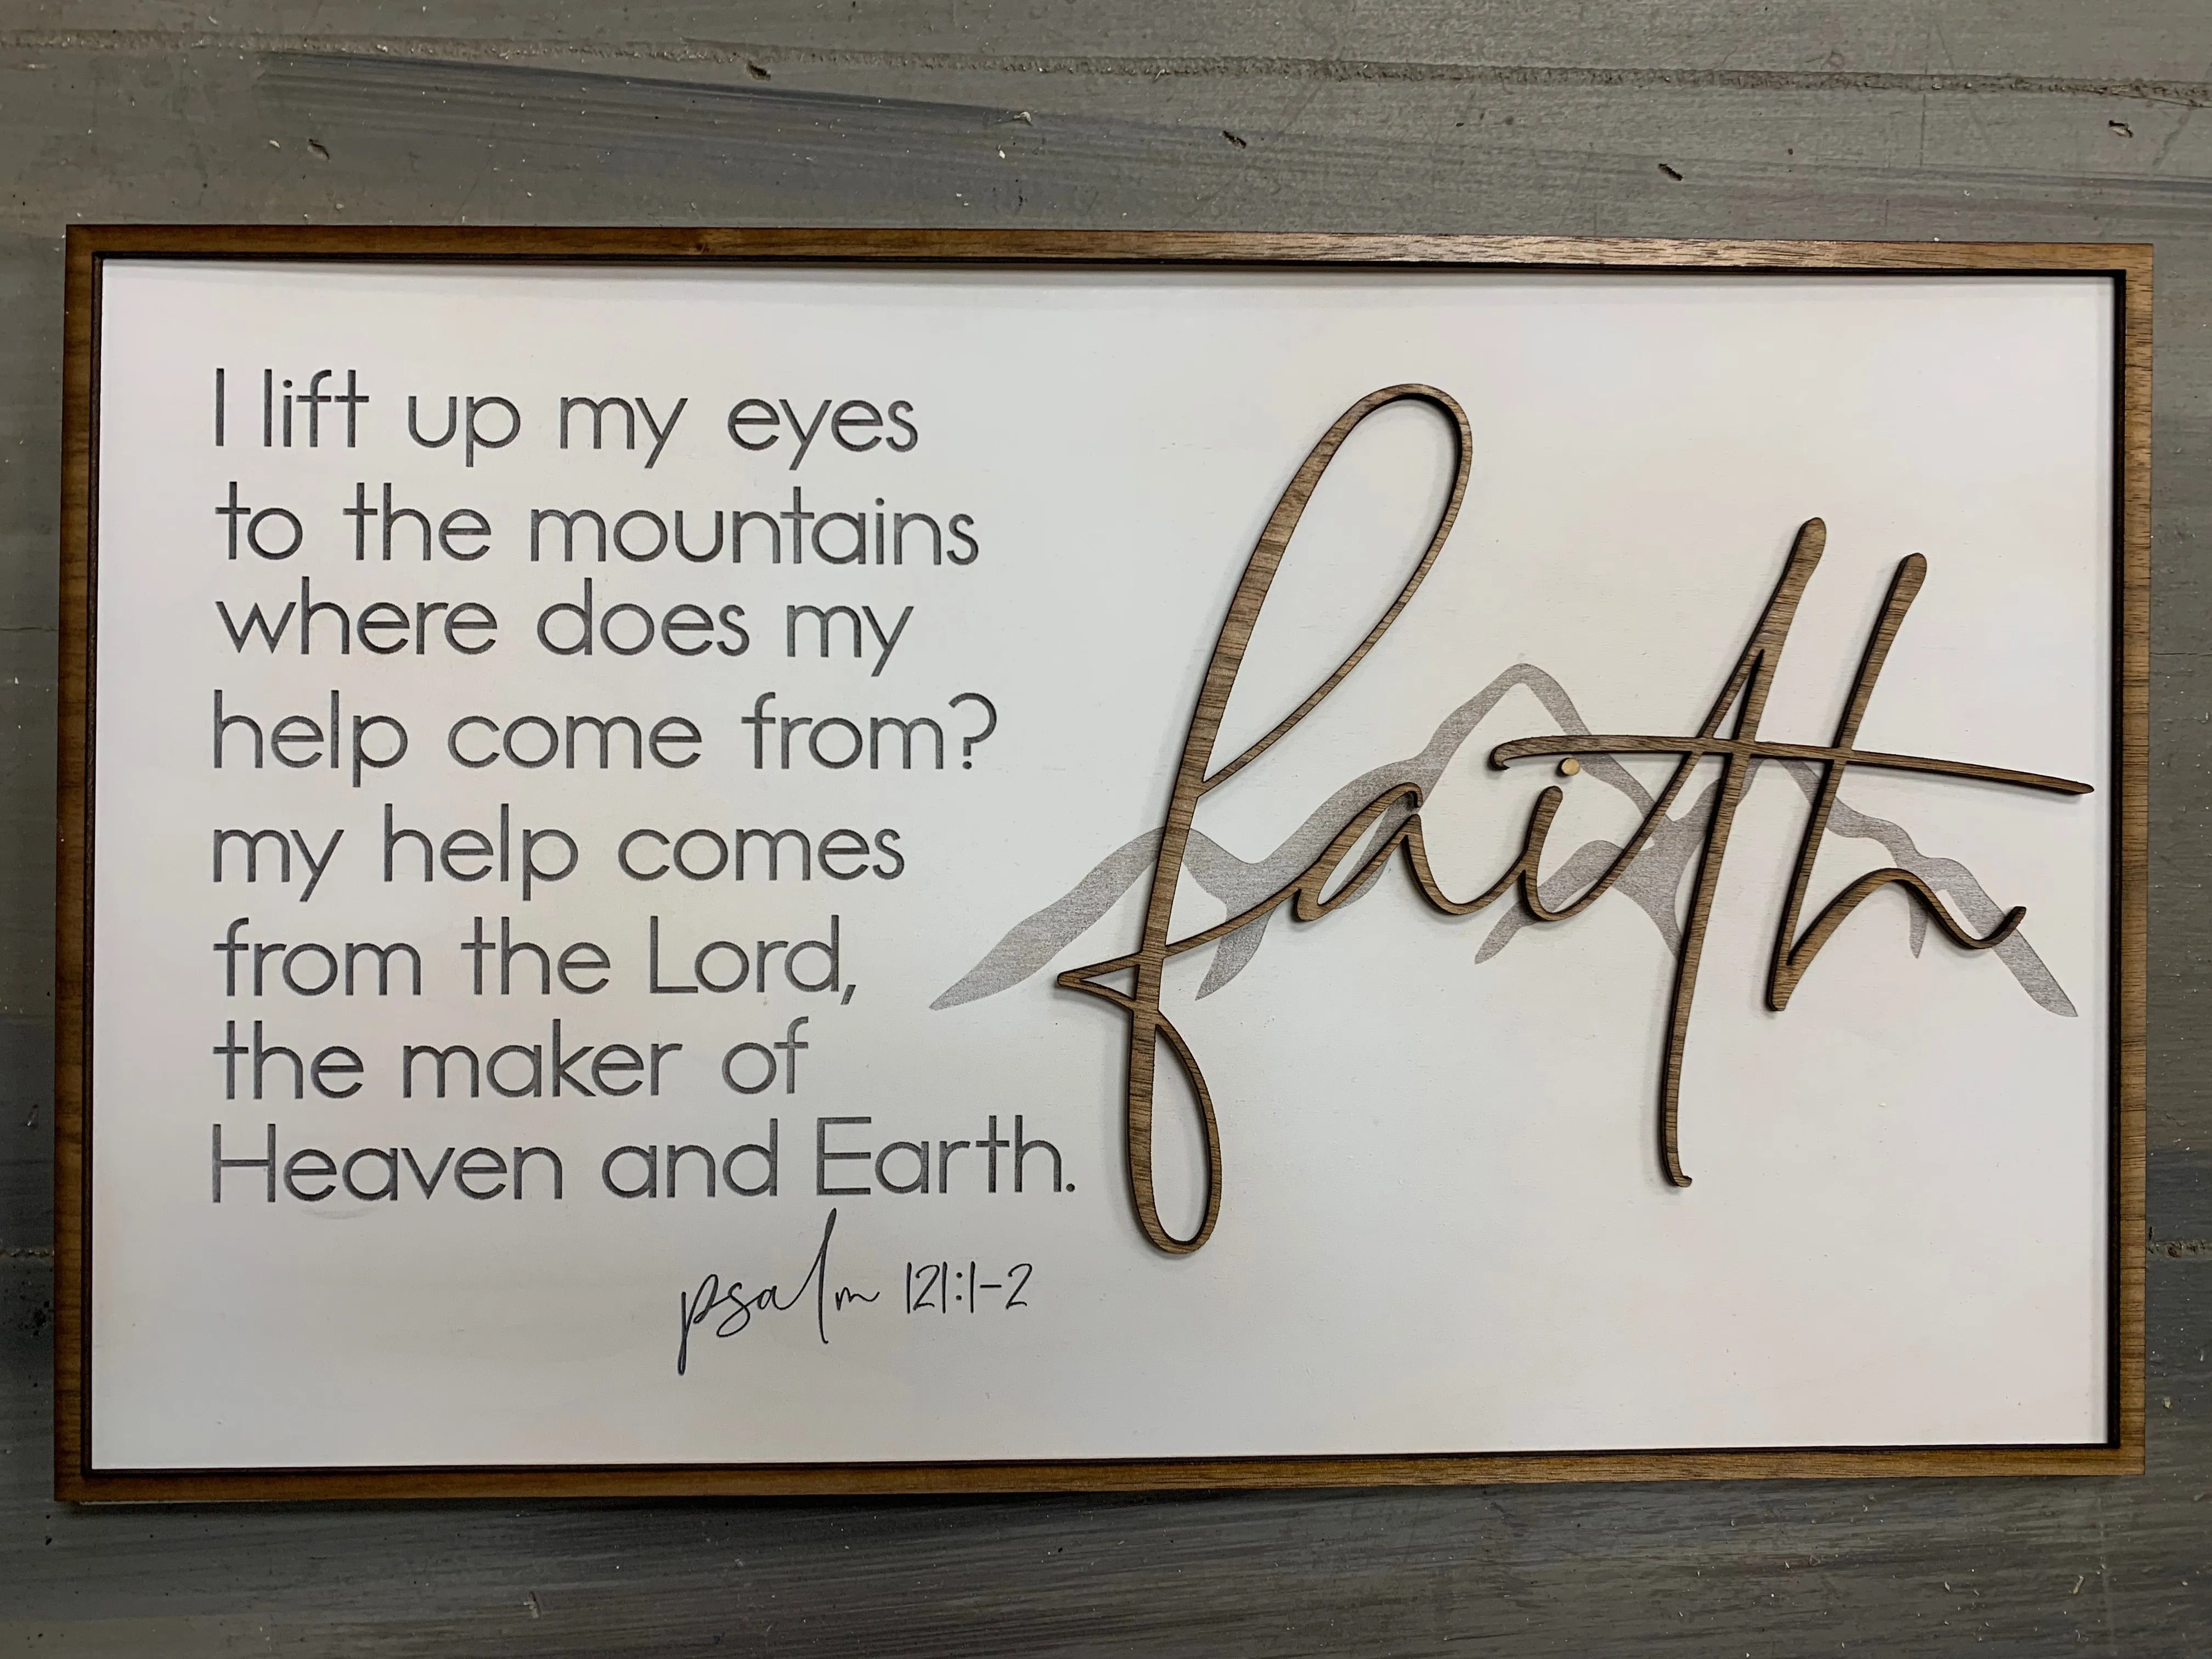 I lift up my eyes
to the mountains
where does my
help come from?
my help comes
from the Lord,
the maker of
Heaven and Earth.
psalm 121:1-2
faith